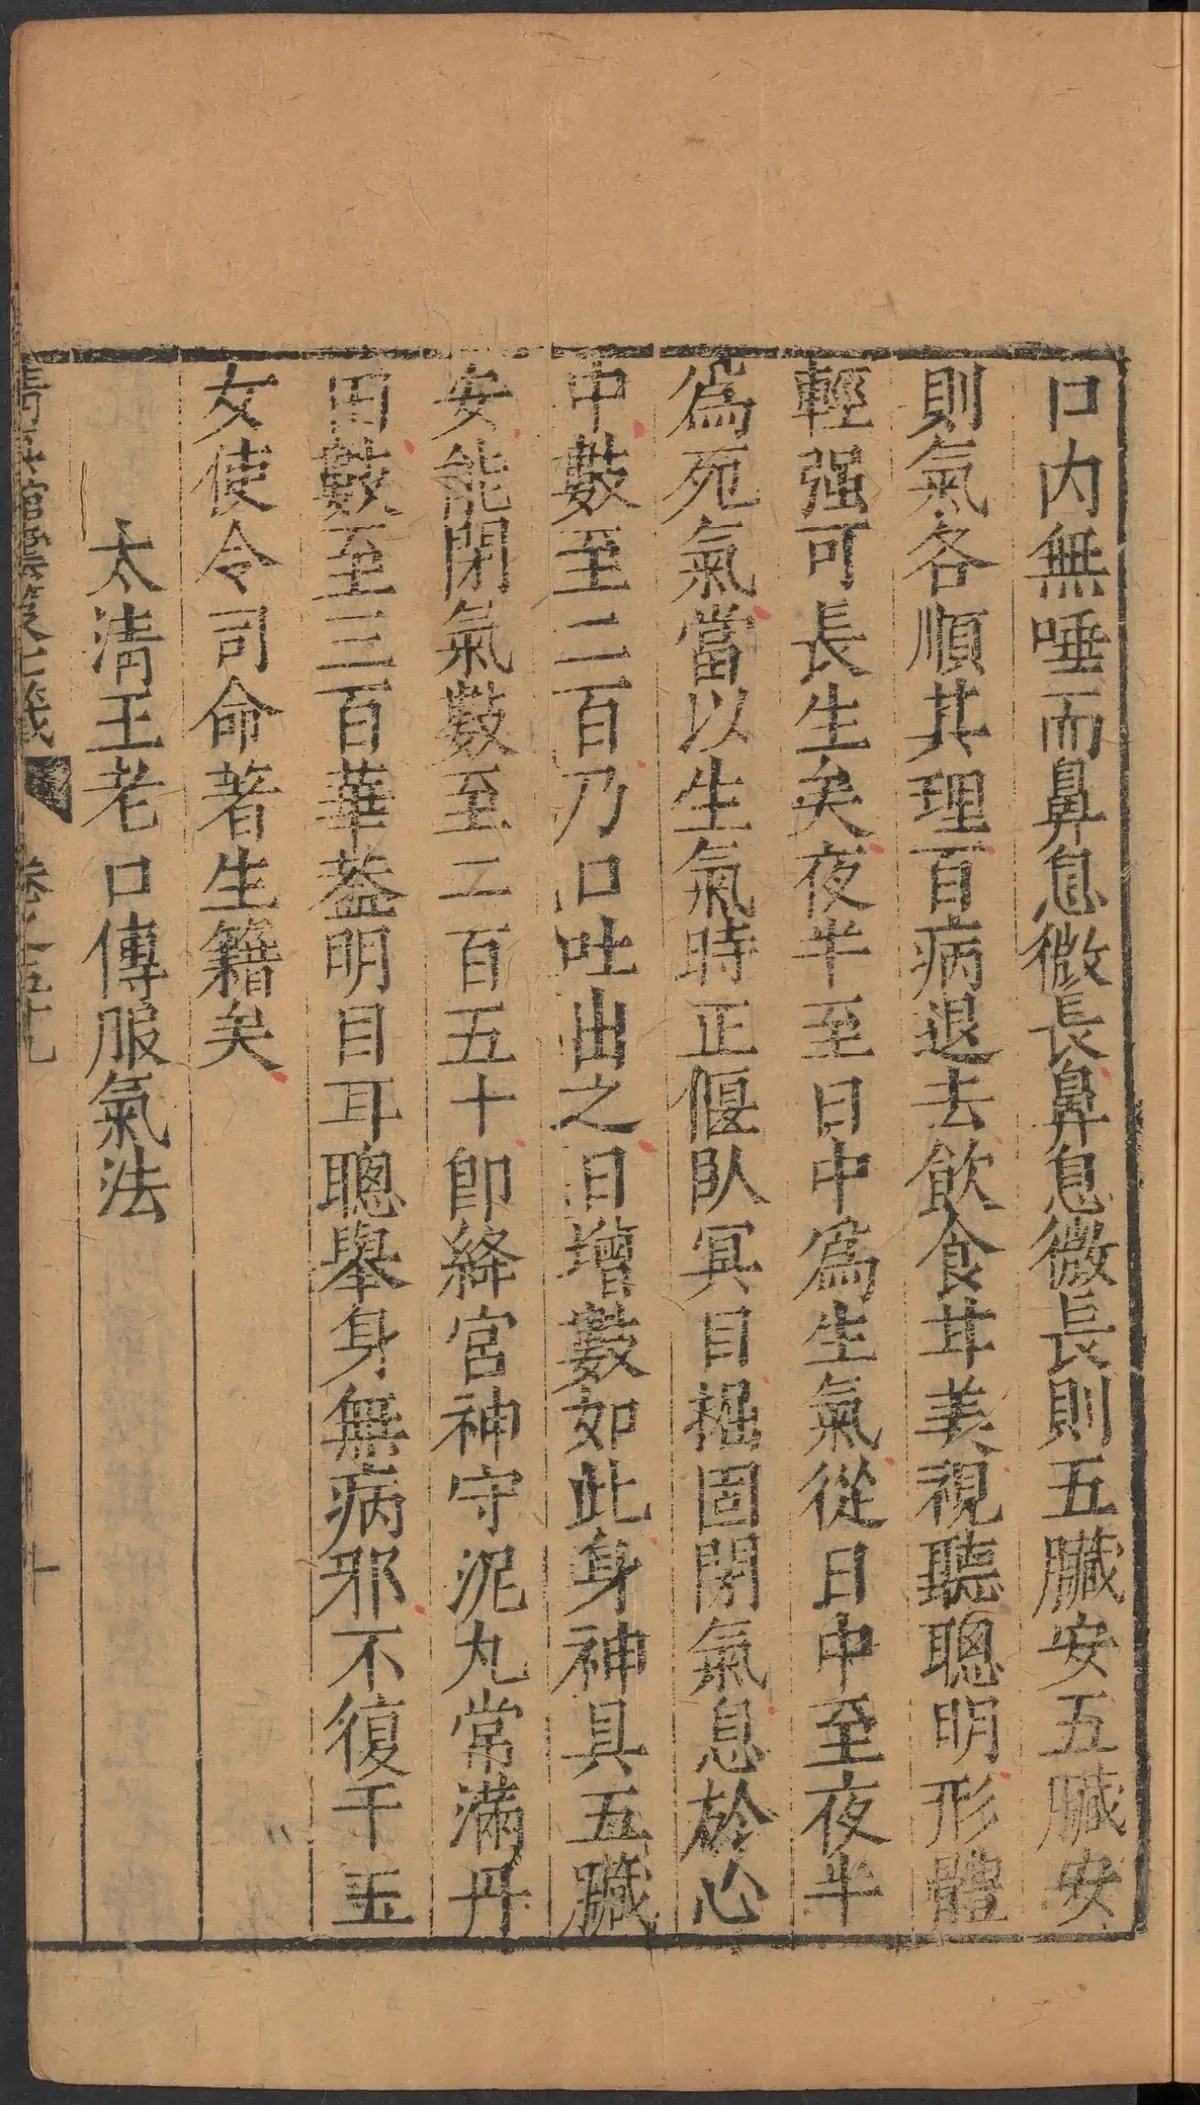 口内無唾而鼻息微長鼻息微長則五臟安五臟安
則氣各順其理百病退去飲食甘美視聽聰明形體
輕强可長生矣夜半至日中爲生氣從日中至夜半
爲死氣當以生氣時正偃臥冥目握固閉氣息於心
中數至二百乃口吐出之日增數如此身神具五臟
安能閉氣數至二百五十卽絳宮神守泥丸常滿丹
田數至三百華蓋明目耳聰舉身無病邪不復干玉
女使令司命著生籍矣
太淸王老口傳服氣法
卷五十九